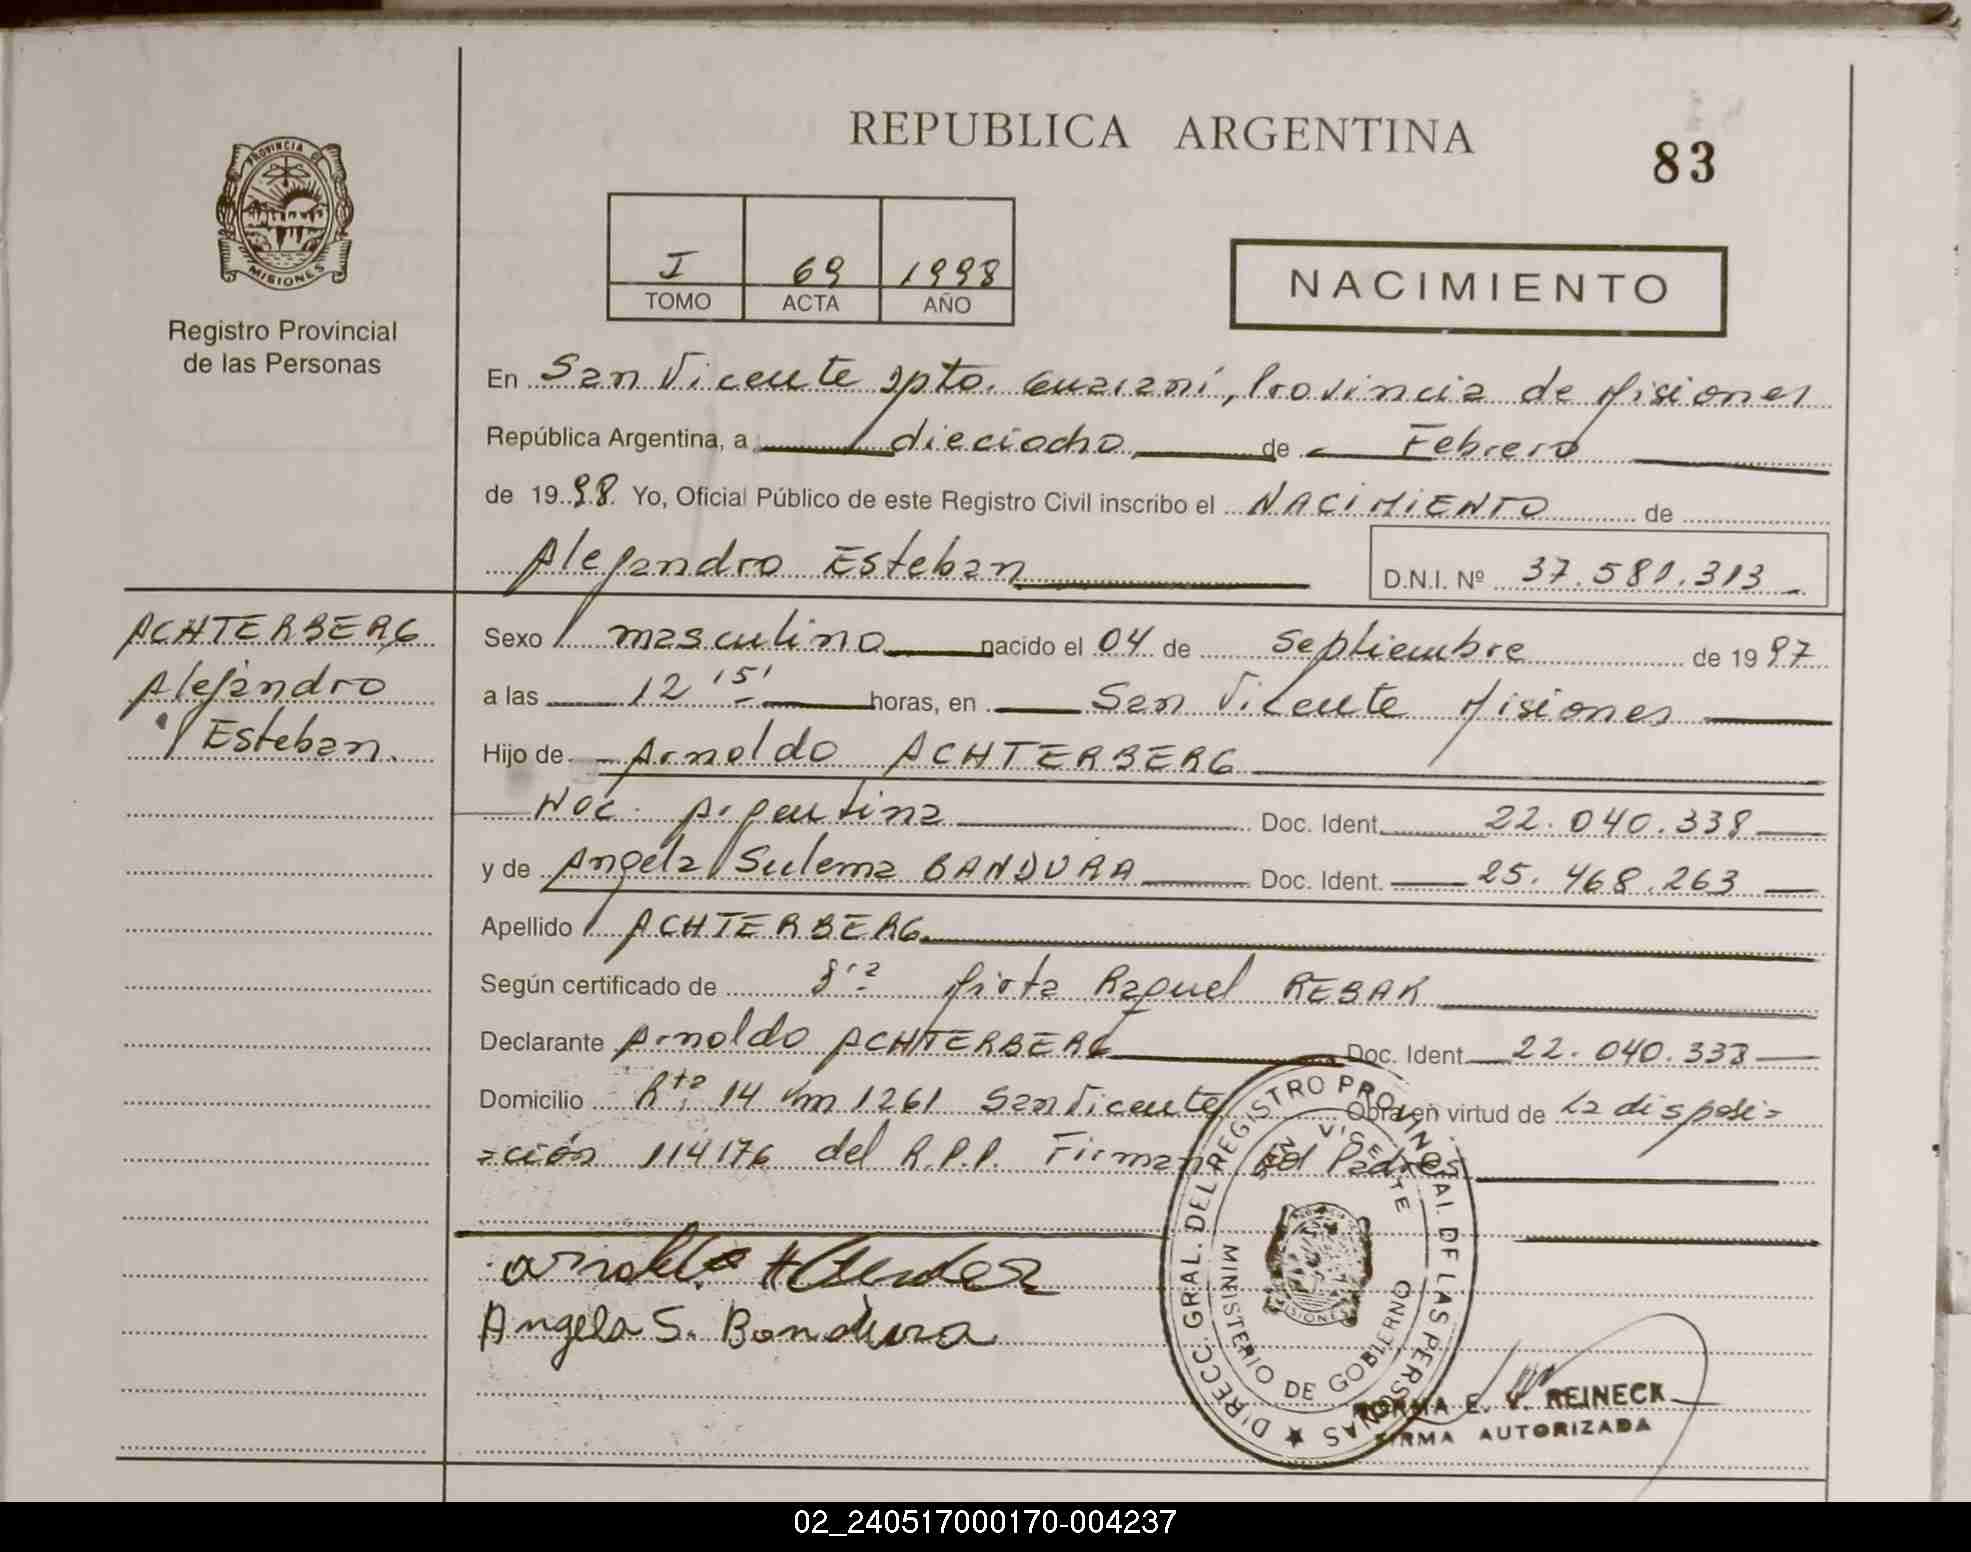 REPUBLICA ARGENTINA
83
PROVINCIA DE
MISIONES
Registro Provincial
de las Personas
I 69 1998
TOMO ACTA AÑO
NACIMIENTO
En San Vicente Dpto. Guaraní, Provincia de Misiones
República Argentina, a dieciocho de Febrero
de 1998 Yo, Oficial Público de este Registro Civil inscribo el NACIMIENTO de
Alejandro Esteban D.N.I. Nº 37.581.313
ACHTERBERG
Alejandro
Esteban.
Sexo masculino nacido el 04 de Septiembre de 1997
a las 12 15' horas, en San Vicente Misiones
Hijo de Arnoldo ACHTERBERG
Nac. Argentina Doc. Ident. 22.040.338
y de Angela Sulema BANDURA Doc. Ident. 25.468.263
Apellido ACHTERBERG
Según certificado de Mirta Raquel REBAK
Declarante Arnoldo ACHTERBERG Doc. Ident. 22.040.338
Domicilio Rta. 14 Km 1261 San Vicente Obra en virtud de la disposi=
=ción 114176 del R.P.P. Firman ad Padres
Angela S. Bandura
DIRECC. GRAL. DEL REGISTRO PROVINCIAL DE LAS PERSONAS
SAN VICENTE
MINISTERIO DE GOBIERNO
NORMA E. V. REINECK
FIRMA AUTORIZADA
02_240517000170-004237